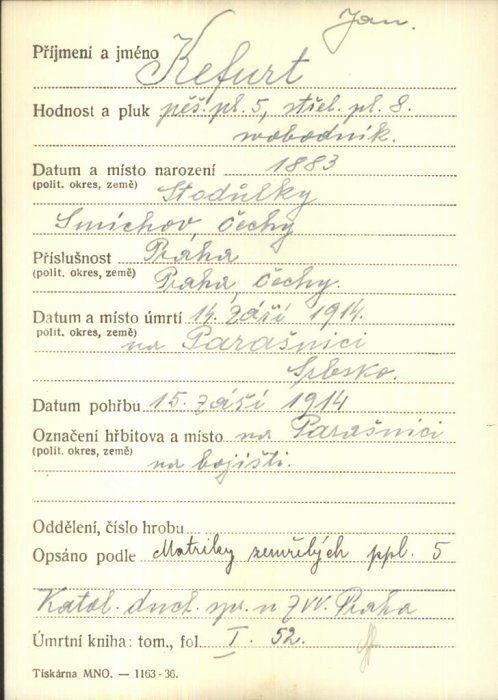 Jan.
Příjmení a jméno Kefurt
Hodnost a pluk pěš. pl. 5, střel. pl. 8.
svobodník.
Datum a místo narození 1883
(polit. okres, země) Stodůlky
Smíchov, Čechy
Příslušnost Praha
(polit. okres, země) Praha, Čechy.
Datum a místo úmrtí 14. září 1914.
polit. okres, země) na Parašnici
Srbsko.
Datum pohřbu 15. září 1914
Označení hřbitova a místo na Parašnici
(polit. okres, země) na bojišti.
Oddělení, číslo hrobu
Opsáno podle Matriky zemřelých ppl. 5
Katol. duch. spr. u ZVV. Praha
Úmrtní kniha: tom., fol. I. 52.
Tiskárna MNO. — 1163-36.